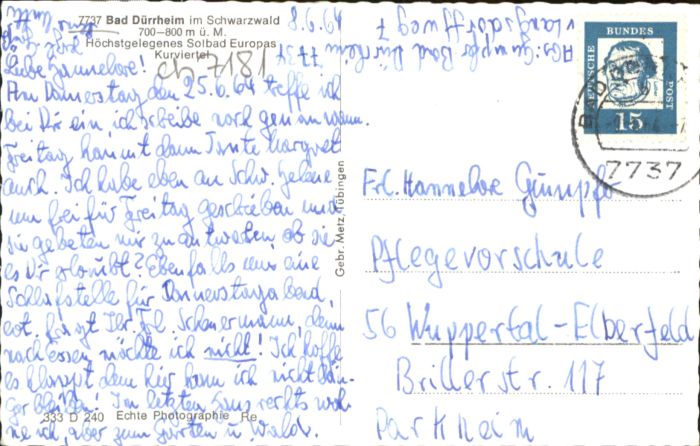 7737 Bad Dürrheim im Schwarzwald
700–800 m ü. M.
Höchstgelegenes Solbad Europas
Kurviertel
8.6.64
ch 7181
Liebe Hannelore!
Am Donnerstag den 25.6.64 treffe ich
bei Dir ein, ich schreibe noch genau wann.
Freitag kommt dann Tante Margret
auch. Ich habe eben an Schw. Helene
um frei für Freitag geschrieben und
sie gebeten mir zu antworten, ob sie
es Dir erlaubt? Ebenfalls um eine
Schlafstelle für Donnerstagabend,
evt. fragt Ihr Frl. Scheuermann, denn
nach Essen möchte ich nicht! Ich hoffe
es klappt denn hier kann ich nicht län-
ger bleiben! Im letzten Haus rechts woh-
ne ich, aber zum Garten u. Wald.
333 D 240 Echte Photographie Re.
Gebr. Metz, Tübingen
Abs: Gumpfer Bad Dürrheim
7737
DEUTSCHE BUNDESPOST
15
7737
Frl. Hannelore Gumpfer
Pflegevorschule
56 Wuppertal-Elberfeld
Brillerstr. 117
Parkheim